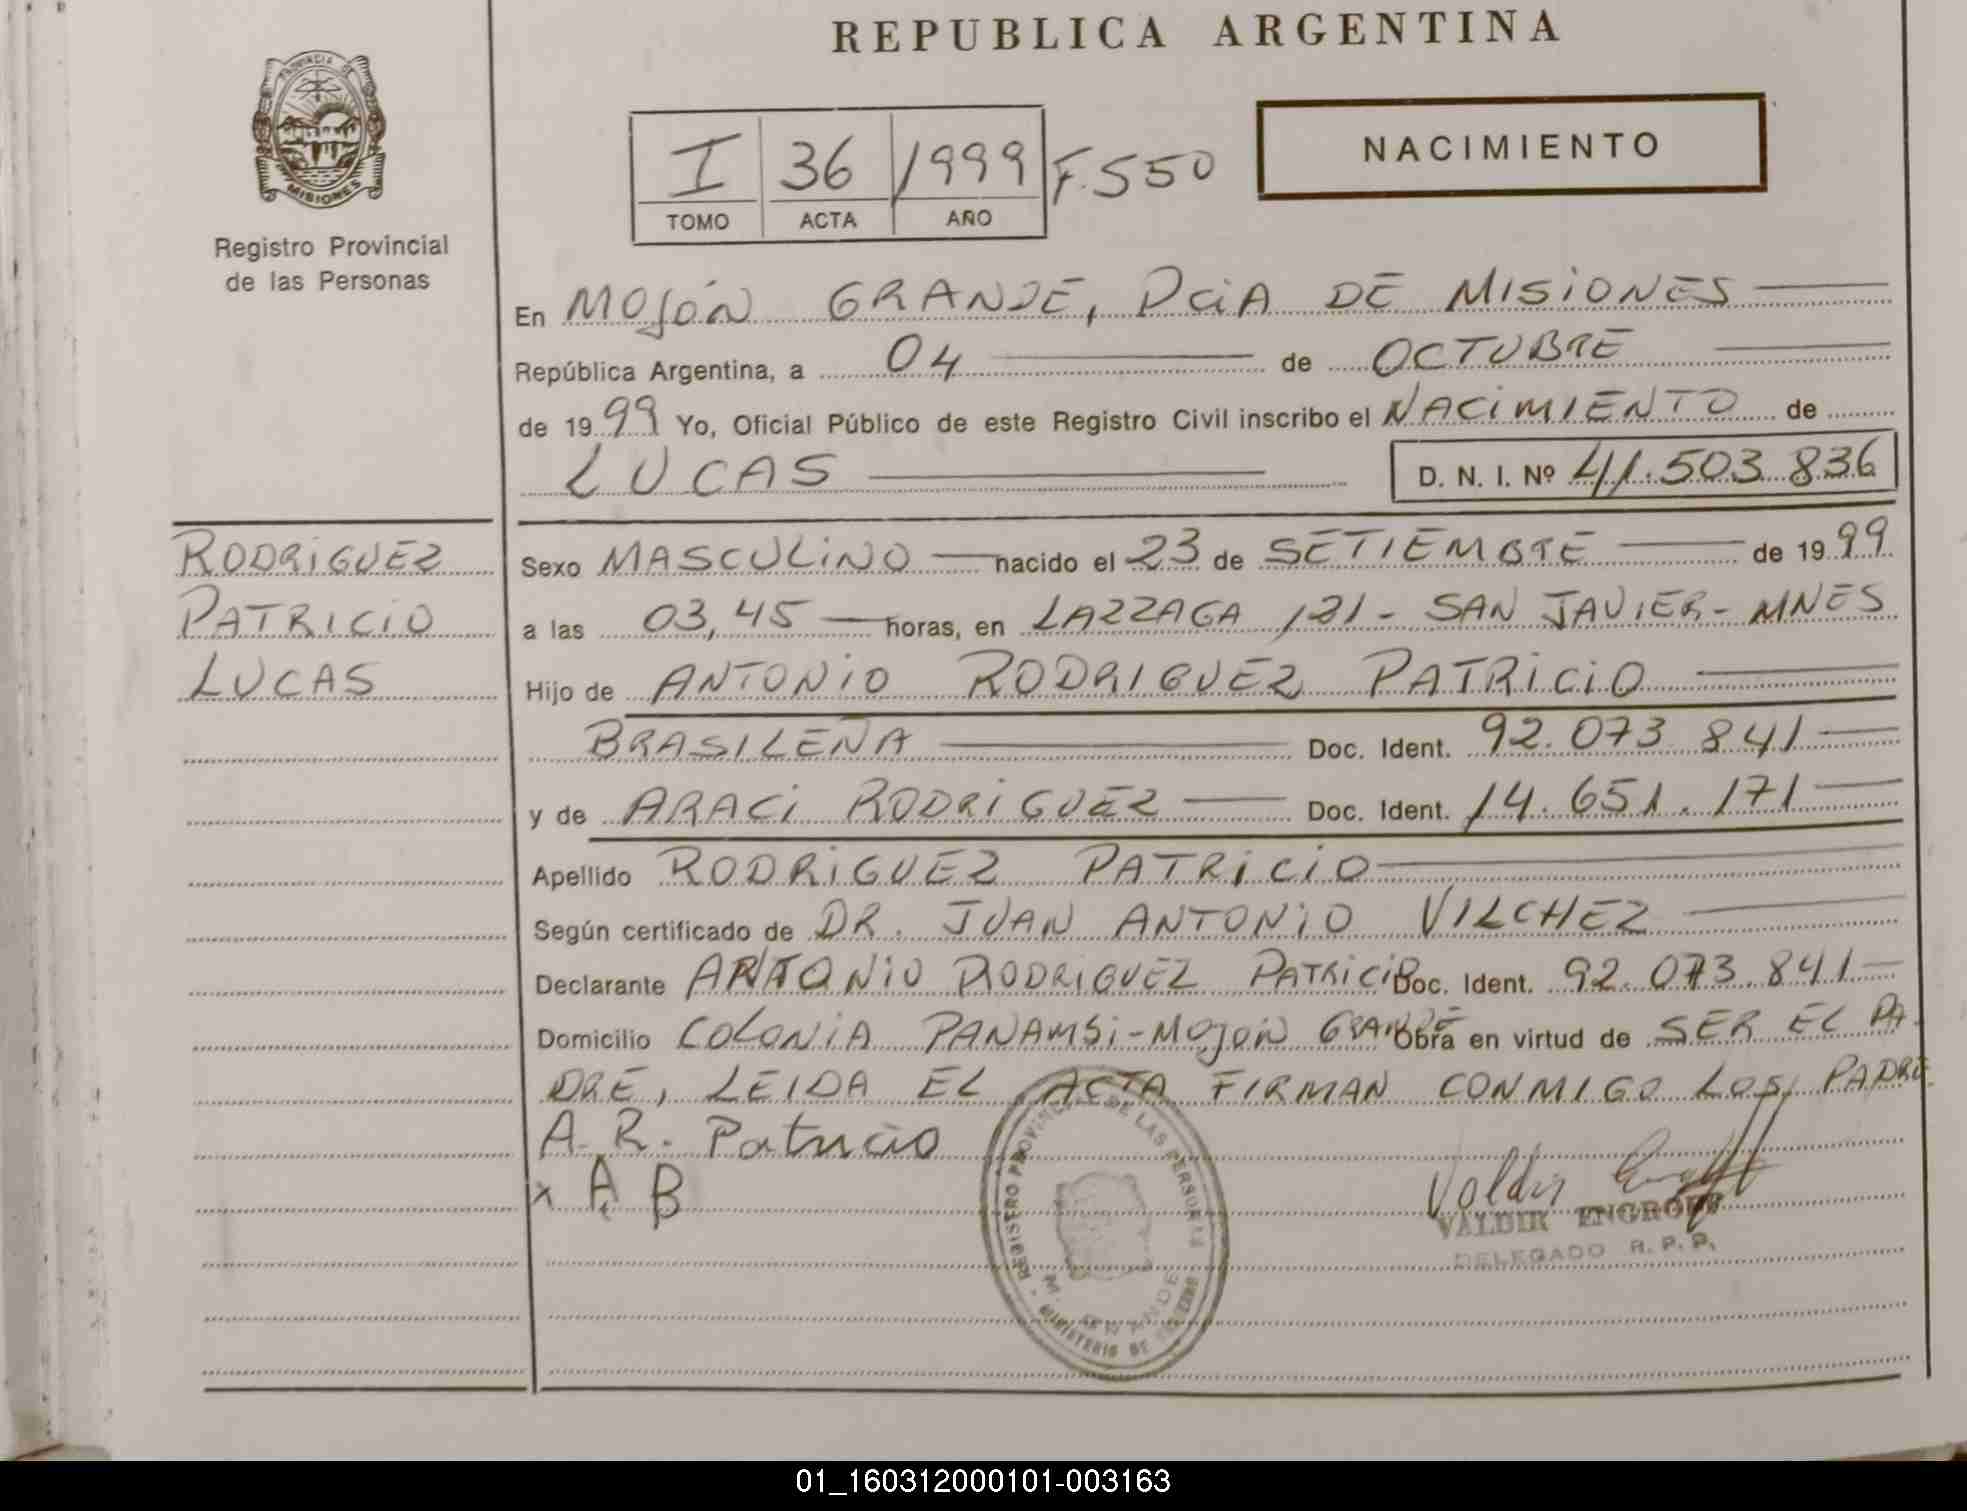 REPUBLICA ARGENTINA
PROVINCIA DE
MISIONES
Registro Provincial
de las Personas
NACIMIENTO
I 36 1999 F.550
TOMO ACTA AÑO
En MOJÓN GRANDE, PCIA DE MISIONES
República Argentina, a 04 de OCTUBRE
de 1999 Yo, Oficial Público de este Registro Civil inscribo el NACIMIENTO de
LUCAS D. N. I. Nº 41.503.836
RODRIGUEZ
PATRICIO
LUCAS
Sexo MASCULINO nacido el 23 de SETIEMBRE de 1999
a las 03,45 horas, en LAZZAGA 121 - SAN JAVIER - MNES
Hijo de ANTONIO RODRIGUEZ PATRICIO
BRASILEÑA Doc. Ident. 92.073.841
y de ARACI RODRIGUEZ Doc. Ident. 14.651.171
Apellido RODRIGUEZ PATRICIO
Según certificado de DR. JUAN ANTONIO VILCHEZ
Declarante ANTONIO RODRIGUEZ PATRICIO Doc. Ident. 92.073.841
Domicilio COLONIA PANAMBI - MOJON GRANDE Obra en virtud de SER EL PA-
DRE, LEIDA EL ACTA FIRMAN CONMIGO LOS PADRE
A. R. Patricio
x A B
REGISTRO PROVINCIAL DE LAS PERSONAS
M. GRANDE
MINISTERIO DE GOBIERNO
Valdir
VALDIR ENGROFF
DELEGADO R. P. P.
01_160312000101-003163